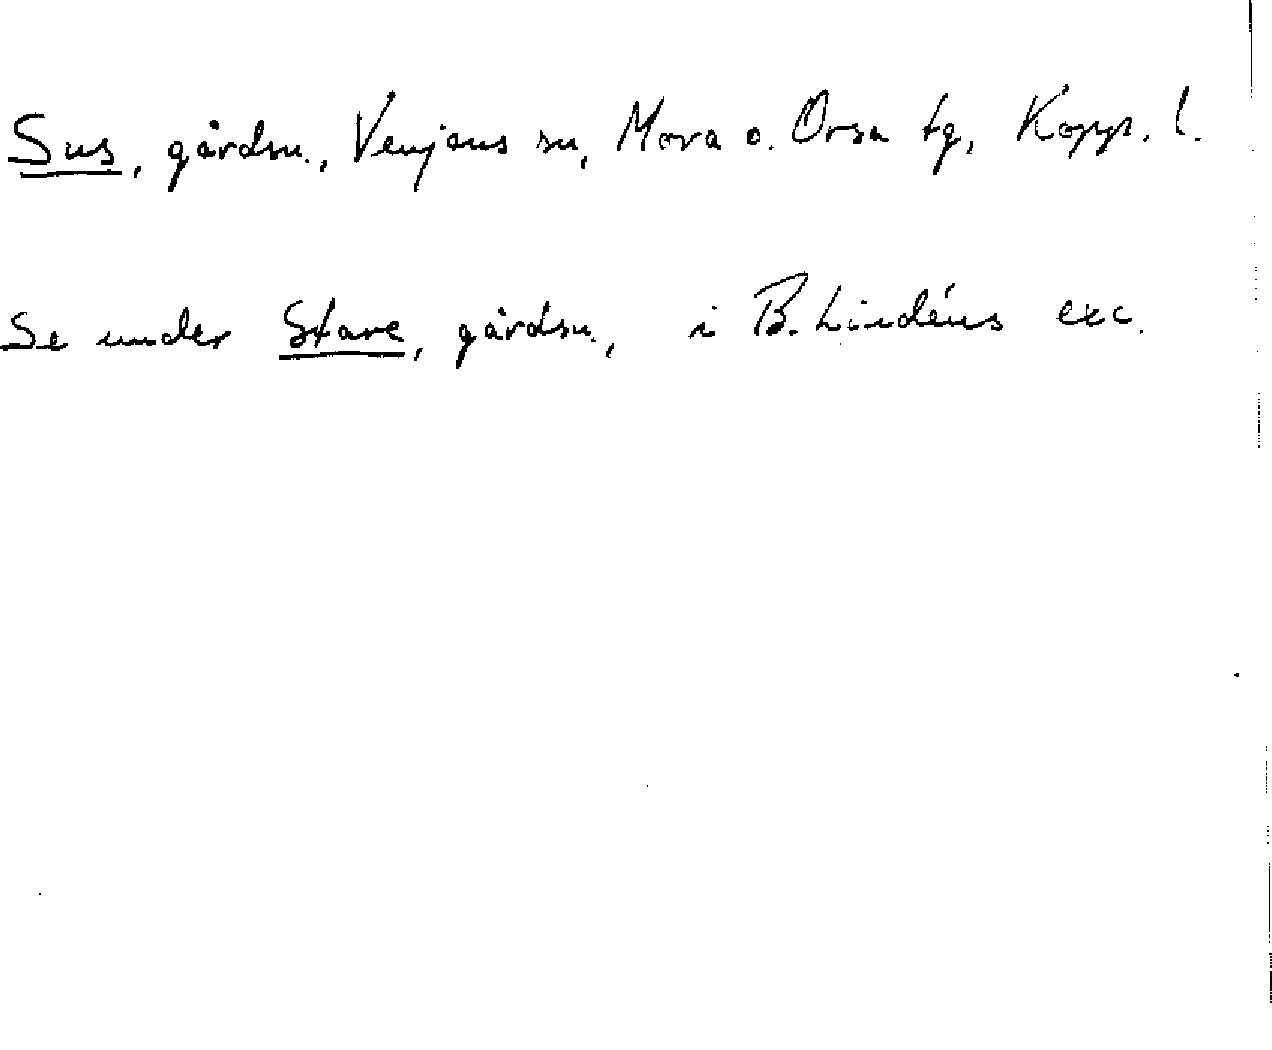 Sus, gårdsn., Venjans sn, Mora o. Orsa tg, Kopp. l.
Se under Stare, gårdsn., i B. Lindéns exc.